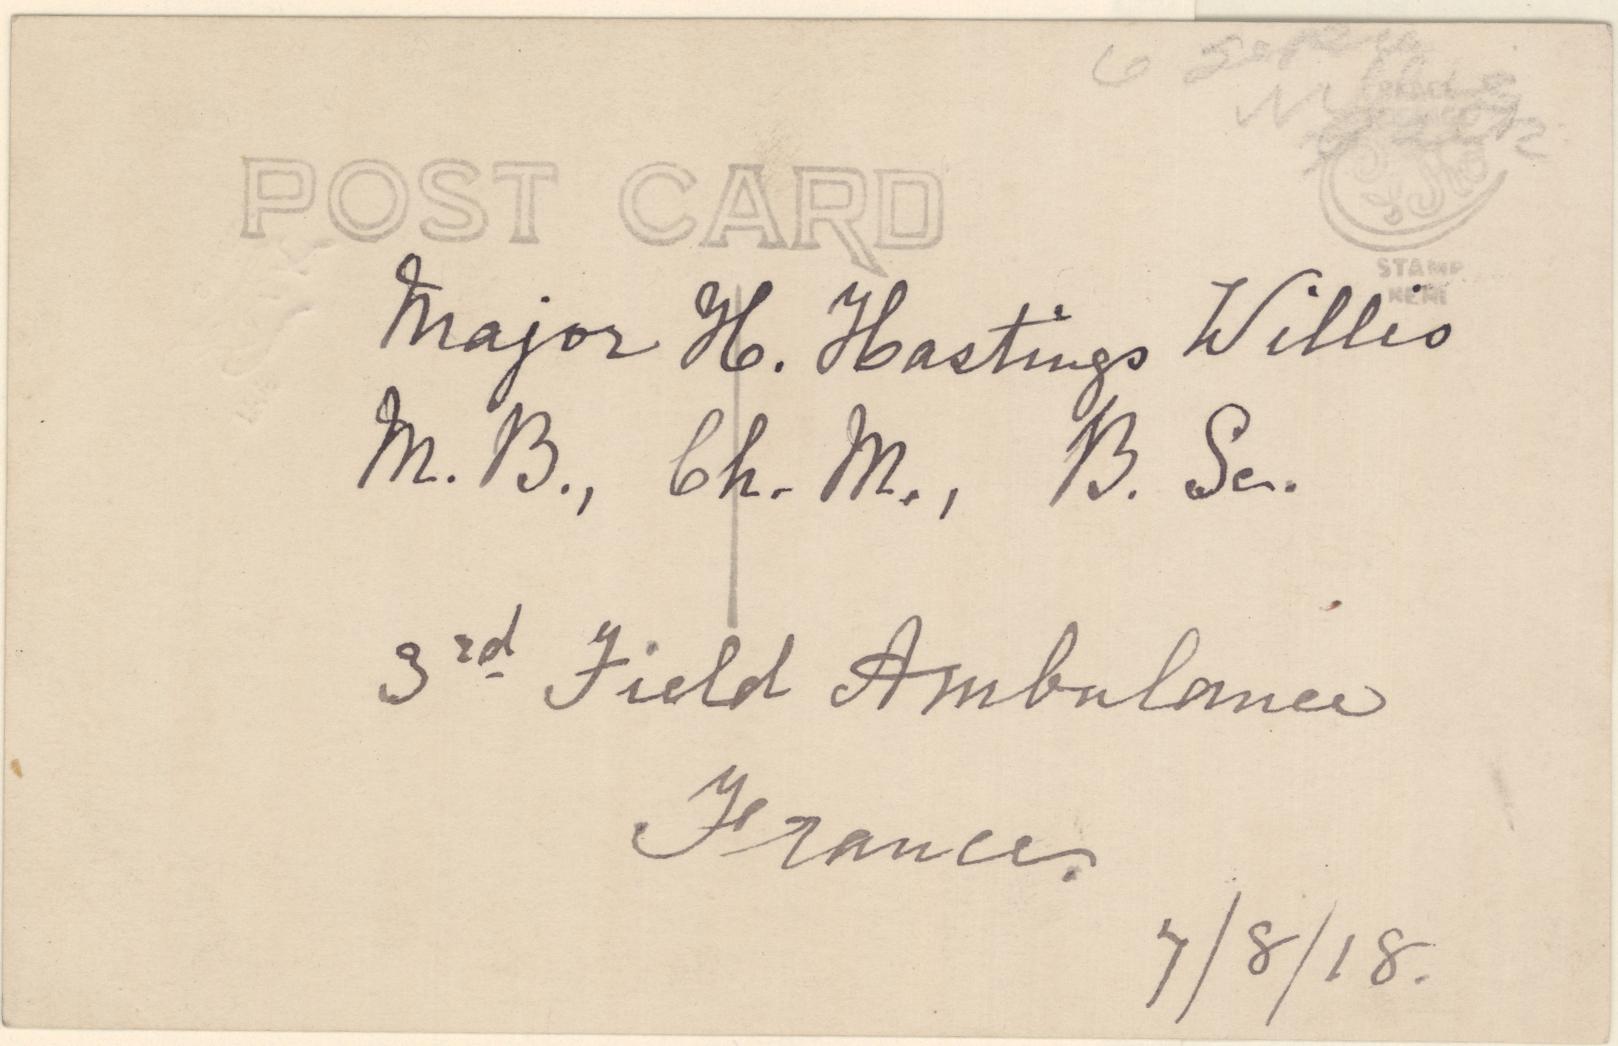 POST CARD
STAMP
HERE
Major H. Hastings Willis
M.B., Ch. M., B. Sc.
3rd Field Ambulance
France.
7/8/18.